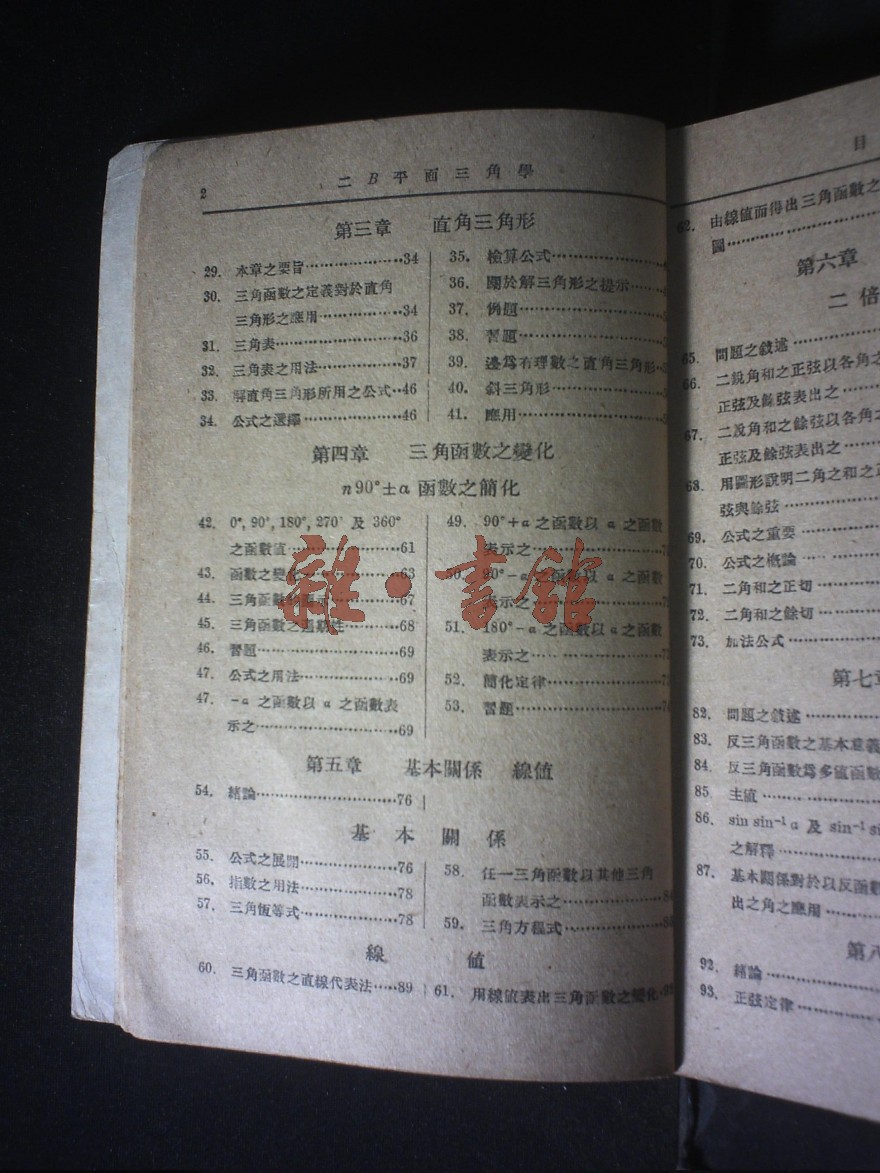 2
二B平面三角學
第三章 直角三角形
29. 本章之要旨………………34
30. 三角函數之定義對於直角
三角形之應用………………34
31. 三角表………………36
32. 三角表之用法………………37
33. 解直角三角形所用之公式…46
34. 公式之選擇………………46
35. 檢算公式………………
36. 關於解三角形之提示………
37. 例題………………
38. 習題………………
39. 邊爲有理數之直角三角形
40. 斜三角形………………
41. 應用………………
第四章 三角函數之變化
n90°±α函數之簡化
42. 0°, 90°, 180°, 270° 及 360°
之函數值………………61
43. 函數之變化………………63
44. 三角函數………………67
45. 三角函數之週期性………68
46. 習題………………69
47. 公式之用法………………69
47. −α 之函數以 α 之函數表
示之………………69
49. 90°+α 之函數以 α 之函數
表示之………………
50. 90°−α 之函數以 α 之函數
表示之………………
51. 180°−α 之函數以 α 之函數
表示之………………
52. 簡化定律………………
53. 習題………………
第五章 基本關係 線值
54. 緒論………………76
基本關係
55. 公式之展開………………76
56. 指數之用法………………78
57. 三角恆等式………………78
58. 任一三角函數以其他三角
函數表示之………………
59. 三角方程式………………
線值
60. 三角函數之直線代表法……89
61. 用線值表出三角函數之變化
雜·書館
目
62. 由線值而得出三角函數之
圖………………
第六章
二倍
65. 問題之敘述………………
66. 二銳角和之正弦以各角之
正弦及餘弦表出之………
67. 二銳角和之餘弦以各角之
正弦及餘弦表出之………
68. 用圖形說明二角之和之正
弦與餘弦………………
69. 公式之重要………………
70. 公式之概論………………
71. 二角和之正切………………
72. 二角和之餘切………………
73. 加法公式………………
第七章
82. 問題之敘述………………
83. 反三角函數之基本意義
84. 反三角函數爲多值函數
85. 主值………………
86. sin sin⁻¹ a 及 sin⁻¹
之解釋………………
87. 基本關係對於以反函數
出之角之應用………………
第八
92. 緒論………………
93. 正弦定律………………